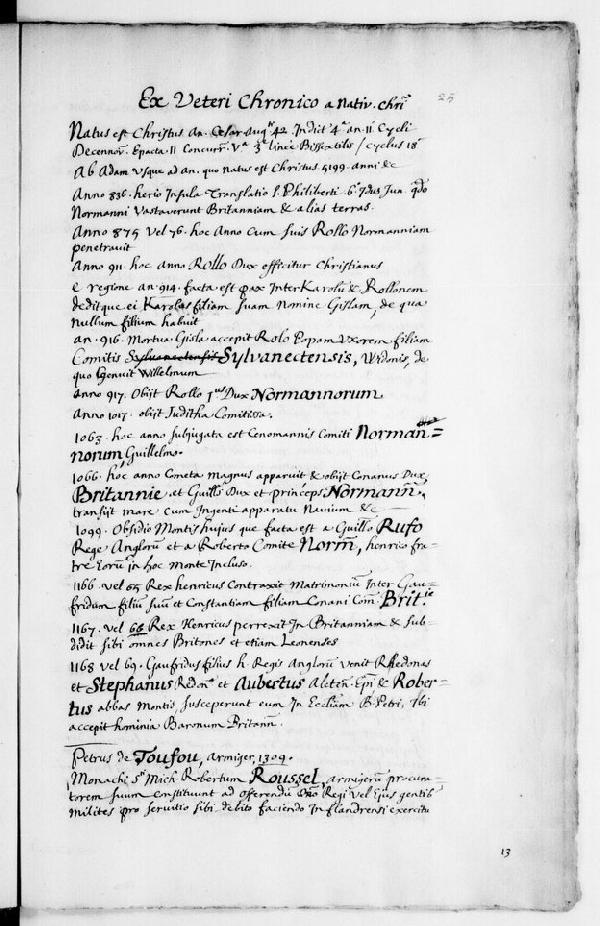 Ex Veteri Chronico a Nativ. Chri 25
Natus est Christus An. Cesar Aug. 42. Indict. 4ª an. 11. Cycli
Decennov. Epacta 11 Concurr. Vª 3ª linee Bissextilis / Cyclus 18
Ab Adam Vsque ad an. quo natus est Christus 5199. anni &c
Anno 836. herio Insula Translatio S. Philiberti. 6. Idus Jun. qdo
Normanni Vastaverunt Britanniam & alias terras.
Anno 875 Vel 76. hoc Anno Cum suis Rollo Normanniam
penetravit
Anno 911 hoc anno Rollo Dux efficitur Christianus
e regione an. 914. facta est pax Inter Karolu & Rollonem
deditque ei Karolus filiam suam Nomine Gislam, de qua
Nullum filium habuit
an. 916. Mortua Gisla accepit Rolo Popam Vxorem filiam
Comitis Sylvanectensis Sylvanectensis, Widonis, de
quo Genuit Willelmum
anno 917. Obijt Rollo 1us Dux Normannorum
Anno 1017. obijt Juditha Comitissa.
1063. hoc anno subjugata est Cenomannis Comiti Norman=
norum Guillelmo.
1066. hoc anno Cometa Magnus apparuit & obijt Conanus Dux
Britannie et Guills Dux et princeps Normann.
transijt mare Cum Ingenti apparatu Navium &c
1099. Obsidio Montis hujus que facta est a Guillo Rufo
Rege Angloru et a Roberto Comite Norm, henrico fra-
tre Eoru in hoc Monte Incluso.
1166. vel 65 Rex henricus Contraxit Matrimoniu Inter Gau-
fridum filiu suu et Constantiam filiam Conani Com. Brit.ie
1167. vel 66 Rex Henricus perrexit In Britanniam & sub-
didit sibi omnes Britones et etiam Leonenses
1168 vel 69. Gaufridus filius h. Regis Angloru venit Rhedonas
et Stephanus Redon. et Aubertus Aleten. Epi & Rober-
tus abbas Montis, susceperunt eum In Ecclam B. Petri, Ibi
accepit hominia Baronum Britann.
Petrus de Toufou, armiger, 1309.
Monachi Sti Mich Robertum Roussel, armigeru procura-
torem suum Constituunt ad offerendu Dno Regi vel Ejus gentib
Milites pro servitio sibi debito faciendo In flandrensi exercitu
13